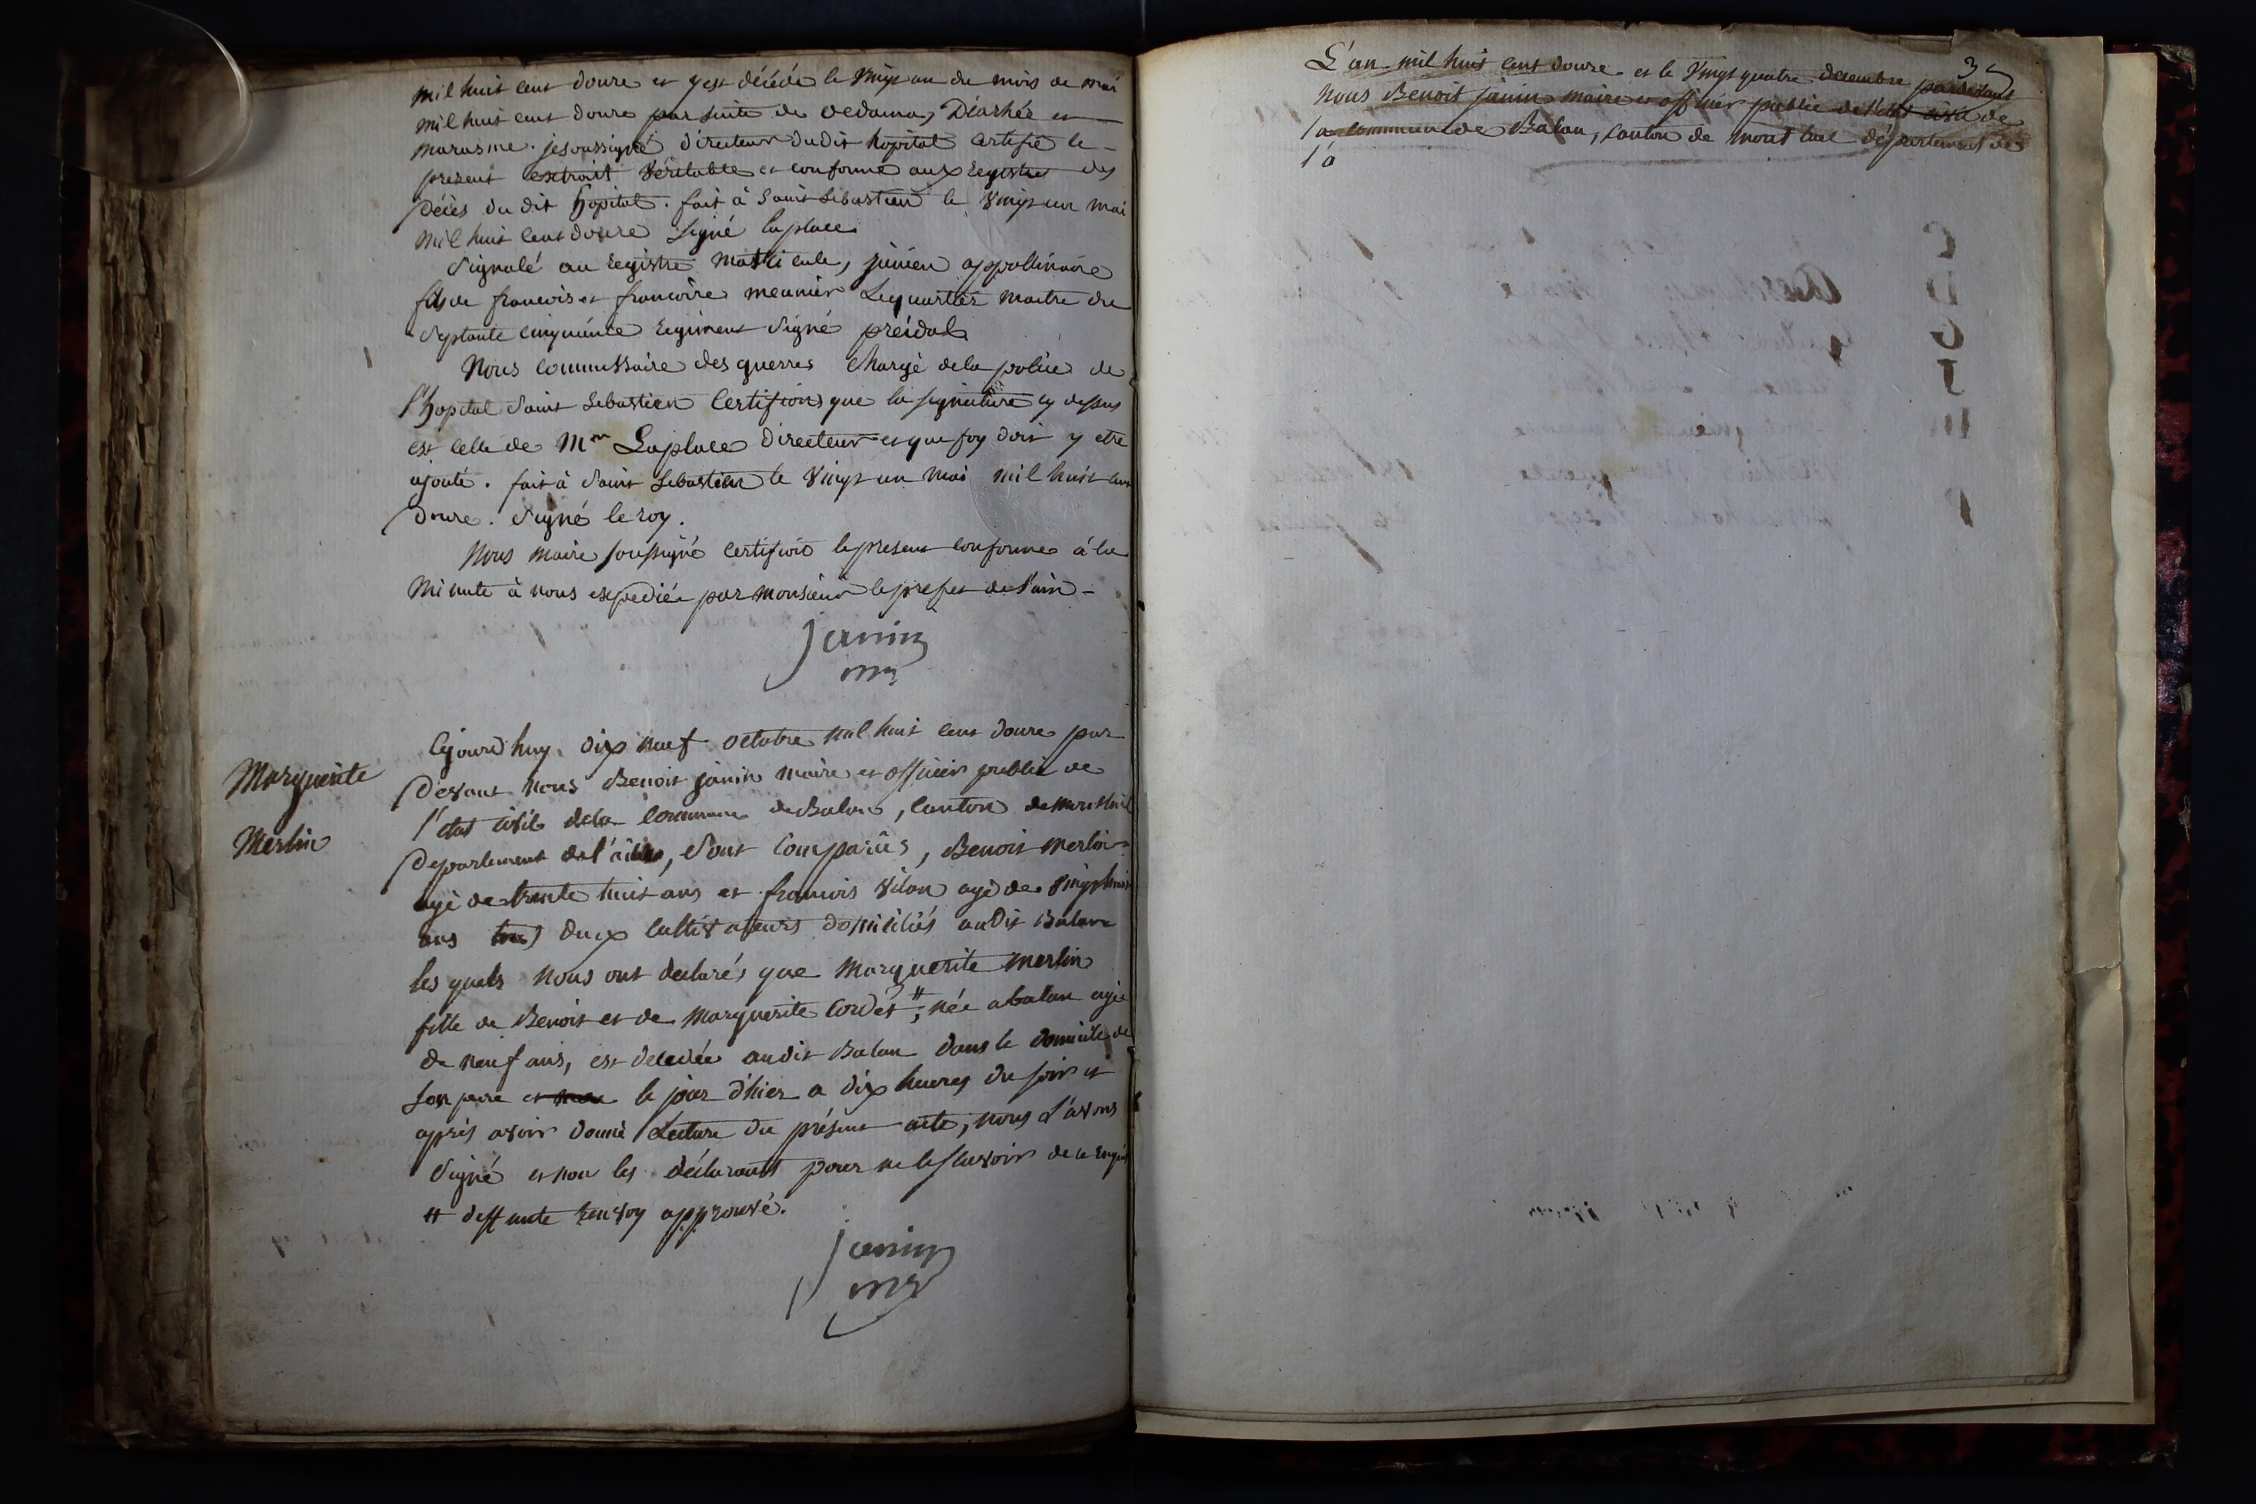 mil huit cent douze et y est décédé le vingt un du mois de mai
mil huit cent douze par suite de oedama, Diarhée et
marasme. je soussigné directeur dudit hopital certifie le
present extrait véritable et conforme aux registres des
Décès du dit hopital. fait à Saint Sebastien le vingt un mai
mil huit cent douze Signé laplace
Signalé au registre matricule, junien appollinaire
fils de francois et francoise meunier Le quartier maitre du
Septante cinquième regiment Signé
Nous commissaire des guerres chargé de la police de
l'hopital Saint Sebastien Certifions que la signature cy dessus
est celle de Mr Laplace directeur et que foy doit y etre
ajouté. fait à Saint Sebastien le vingt un mai mil huit cent
douze. Signé leroy.
Nous maire soussigné certifions le present conforme à la
Minute à nous expediée par monsieur le prefet de l'ain -
janin
mre
Marguerite
Merlin
Cejourd'huy dix neuf octobre mil huit cent douze par
devant nous Benoit janin maire et officier public de
l'etat civil de la commune de Balan, canton de montluel
departement de l'ain, Sont comparûs, Benoit merlin
agé de trente huit ans et francois vilon agé de vingt huit
ans tous deux cultivateurs domiciliés audit Balan
les quels nous ont declarés que Marguerite merlin
fille de Benoit et de Marguerite Cordet #, née a balan agée
de neuf ans, est decedée audit Balan dans le domicile de
son pere et mere le jour d'hier a dix heures du soir et
après avoir donné Lecture du présent acte, nous l'avons
Signé et non les déclarants pour ne le scavoir de ce enquis
# deffunte renvoy approuvé.
janin
mre
3
L'an mil huit cent douze et le vingt quatre decembre pardevant
nous Benoit janin maire et officier public de l'etat civil de
la commune de Balan, canton de mont luel département de
l'a